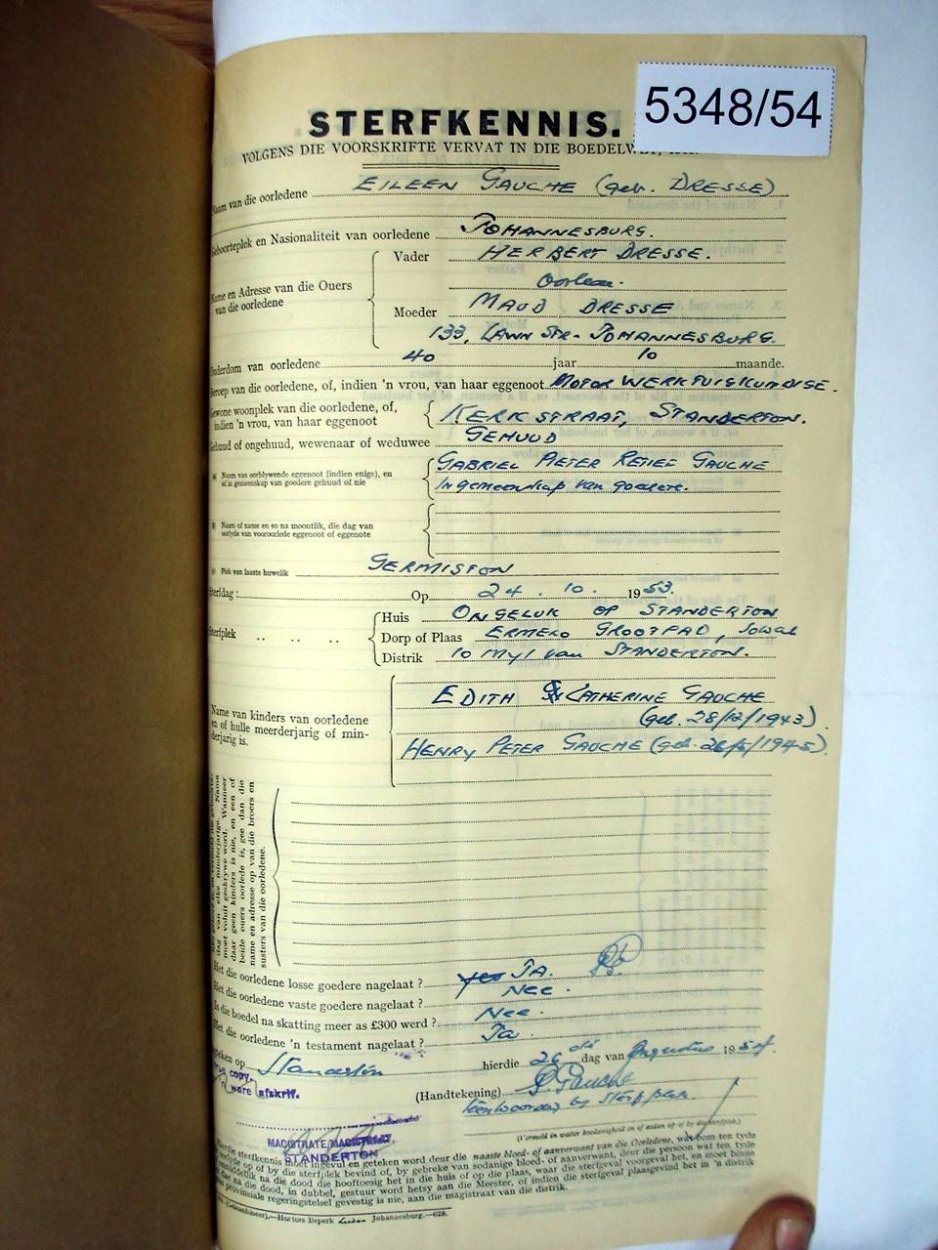 5348/54
STERFKENNIS.
VOLGENS DIE VOORSKRIFTE VERVAT IN DIE BOEDELWET,
Naam van die oorledene EILEEN GAUCHE (geb. DRESSE)
Geboorteplek en Nasionaliteit van oorledene JOHANNESBURG.
Name en Adresse van die Ouers van die oorledene
Vader HERBERT DRESSE.
Oorlede.
Moeder MAUD DRESSE
133, LAWN STR- JOHANNESBURG.
Ouderdom van oorledene 40 jaar 10 maande.
Beroep van die oorledene, of, indien 'n vrou, van haar eggenoot MOTOR WERKTUIGKUNDIGE.
Gewone woonplek van die oorledene, of,
indien 'n vrou, van haar eggenoot KERK STRAAT, STANDERTON.
Gehuud of ongehuud, wewenaar of weduwee GEHUUD
(a) Naam van oorblywende eggenoot (indien enige), en GABRIEL PIETER RETIEF GAUCHE
of in gemeenskap van goedere gehuud of nie In gemeenskap van goedere.
(b) Naam of name en so na moontlik, die dag van
oorlyde van vooroorlede eggenoot of eggenote
(c) Plek van laaste huwelik GERMISTON
Sterfdag: Op 24. 10. 1953.
Sterfplek .. .. ..
Huis ONGELUK OP STANDERTON
Dorp of Plaas ERMELO GROOTPAD,
Distrik 10 Myl van STANDERTON.
Name van kinders van oorledene
en of hulle meerderjarig of min-
derjarig is.
EDITH CATHERINE GAUCHE
(geb. 28/12/1943)
HENRY PETER GAUCHE (geb. 26/5/1945)
dag van elke minderjarige. Name
moet voluit geskrywe word. Wanneer
daar geen kinders is nie, en een of
beide ouers oorlede is, gee dan die
name en adresse op van die broers en
susters van die oorledene.
Het die oorledene losse goedere nagelaat? yes JA.
Het die oorledene vaste goedere nagelaat? Nee.
Is die boedel na skatting meer as £300 werd? Nee.
Het die oorledene 'n testament nagelaat? Ja.
Geteken op Standerton hierdie 26 dag van Augustus 1954
copy.
'n ware afskrif.
(Handtekening) G. Gauche
teenwoordig by sterfplek.
MAGISTRATE/MAGISTRAAT,
STANDERTON
Hierdie sterfkennis moet ingevul en geteken word deur die naaste bloed- of aanverwant van die Oorledene, wat ten tyde
op of by die sterfplek bevind of, by gebreke van sodanige bloed- of aanverwant, deur die persoon wat ten tyde
na die dood die hooftoesig het in die huis of op die plaas, waar die sterfgeval voorgeval het, en moet binne
na die dood, in dubbel, gestuur word hetsy aan die Meester, of indien die sterfgeval plaasgevind het in 'n distrik
provinsiale regeringsetel gevestig is nie, aan die magistraat van die distrik.
Hortors Beperk Johannesburg.—628.